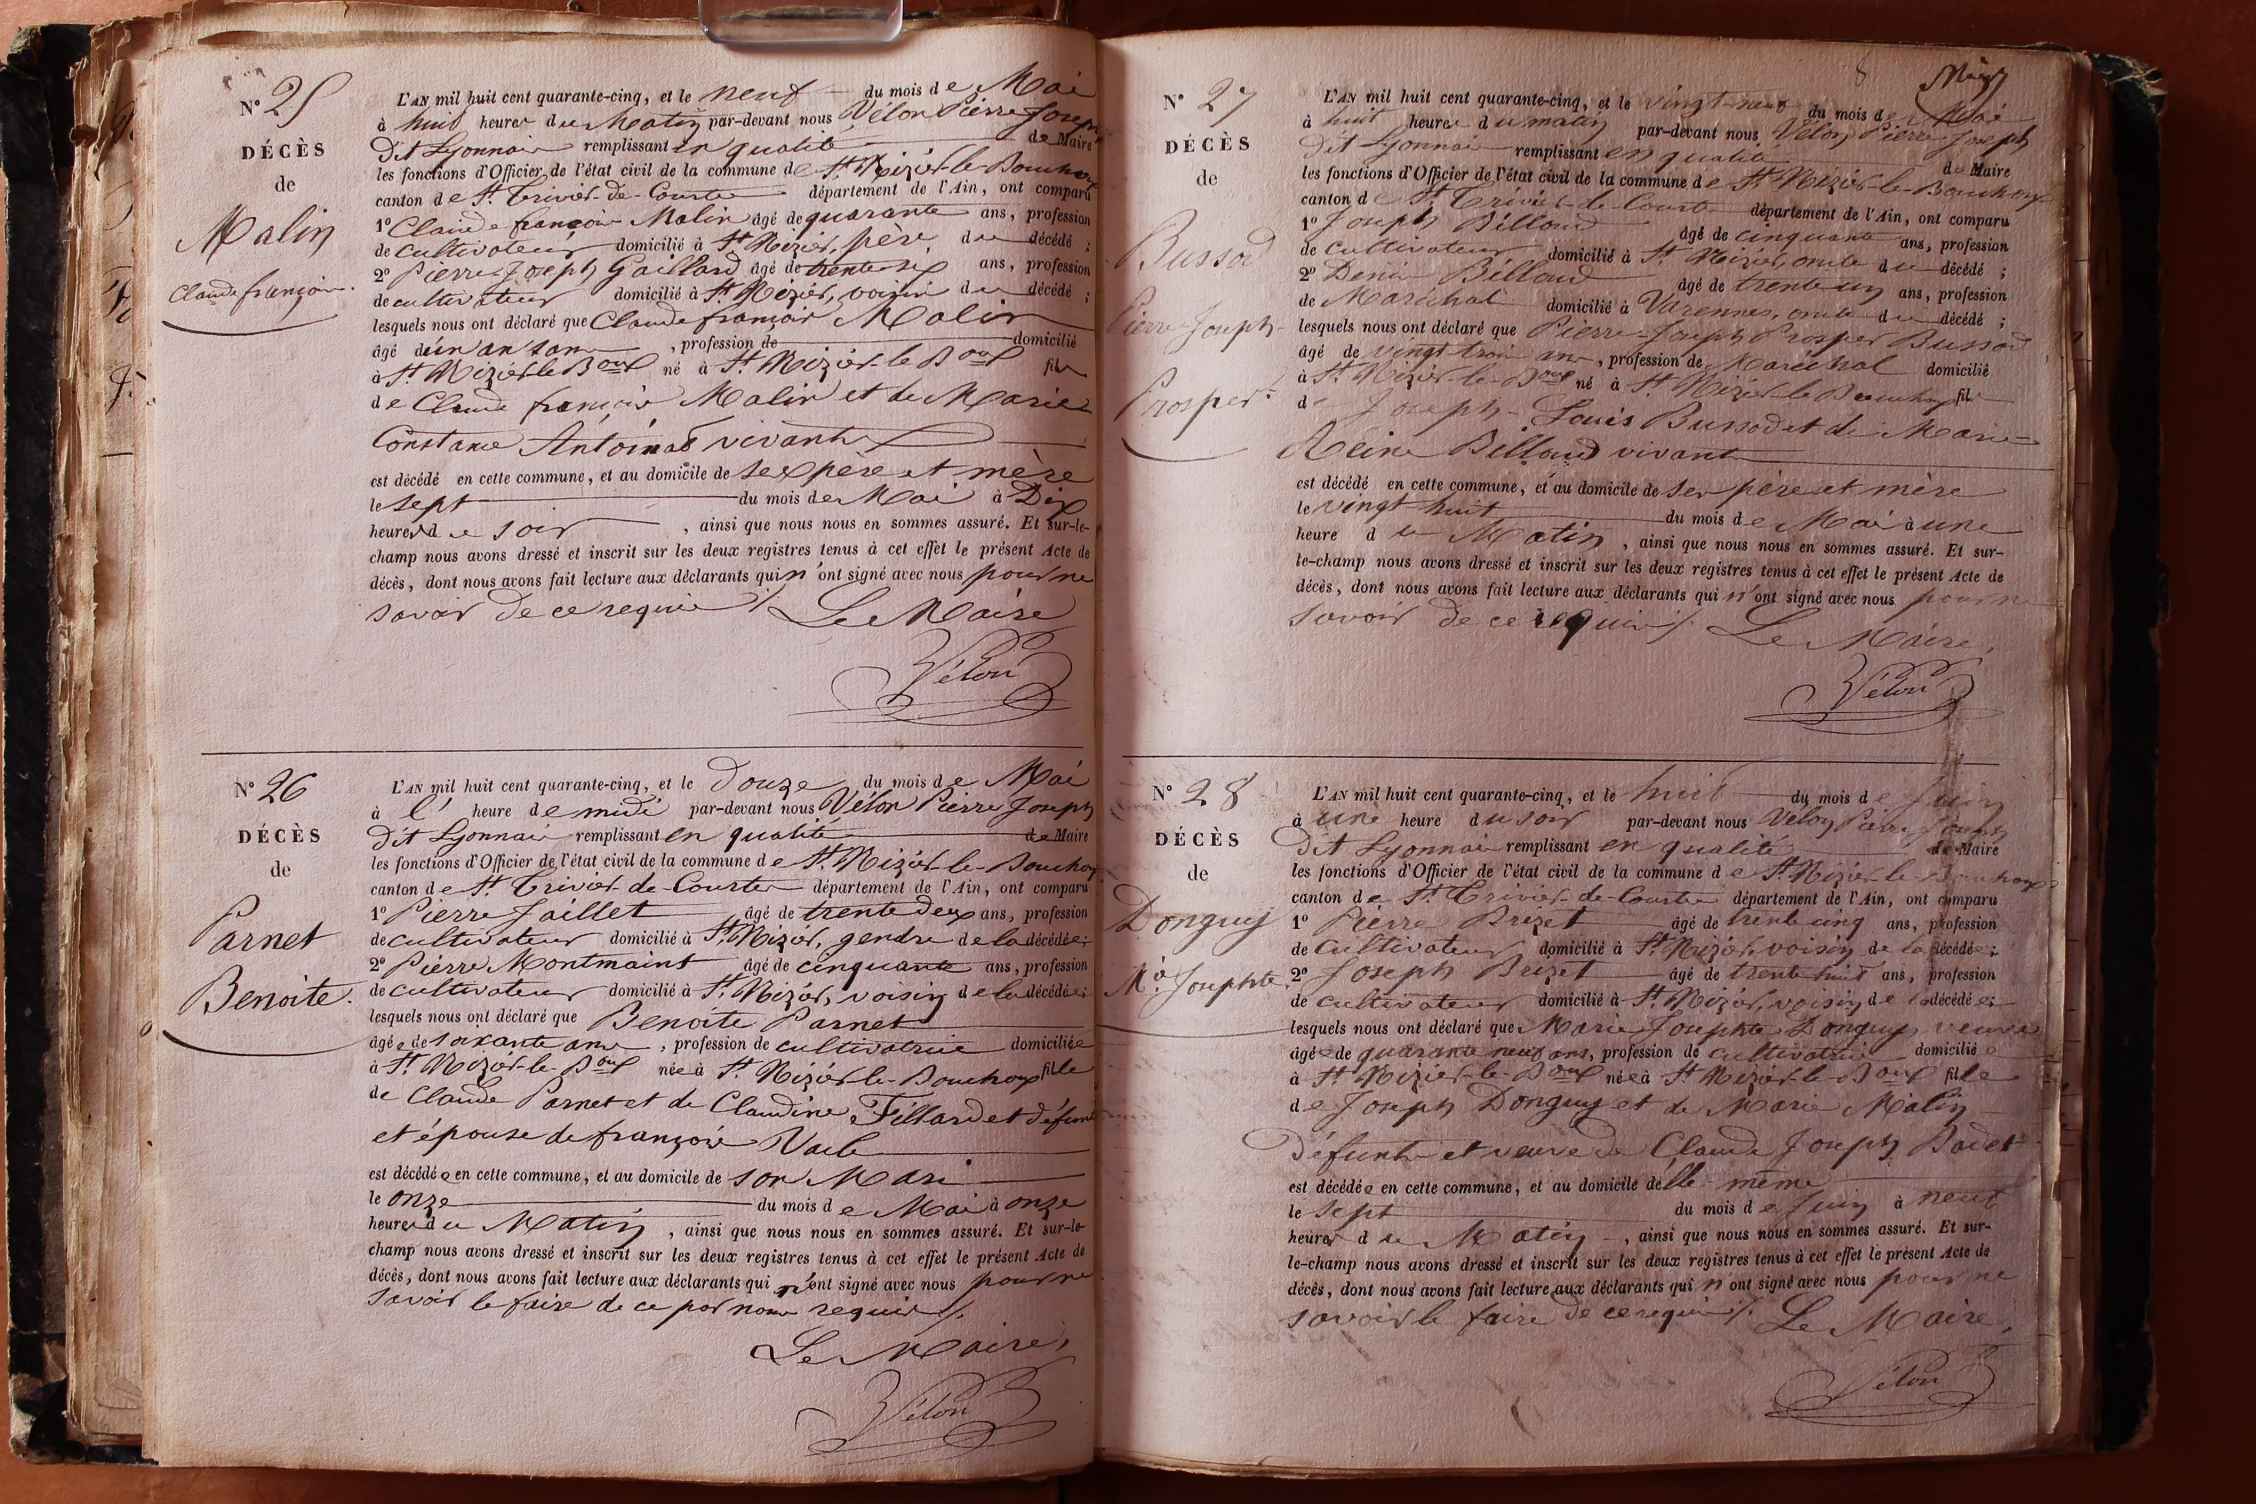 N° 25
DÉCÈS
de
Malin
Claude françois.
L'AN mil huit cent quarante-cinq, et le neuf du mois de Mai
à huit heures du Matin par-devant nous Vélon Pierre Joseph
Dit Lyonnais remplissant en qualité de Maire
les fonctions d'Officier de l'état civil de la commune de St. Nizier-le-Bouchoux
canton de St. Trivier-de-Courtes département de l'Ain, ont comparu
1° Claude françois Malin âgé de quarante ans, profession
de cultivateur domicilié à St. Nizier, père du décédé ;
2° Pierre Joseph Gaillard âgé de trente six ans, profession
de cultivateur domicilié à St. Nizier, voisin du décédé ;
lesquels nous ont déclaré que Claude françois Malin
âgé d'un an , profession de domicilié
à St. Nizier-le-Boux né à St. Nizier-le-Boux fils
de Claude françois Malin et de Marie
Constance Antoinat vivants
est décédé en cette commune, et au domicile de ses père et mère
le sept du mois de Mai à Dix
heures de soir , ainsi que nous nous en sommes assuré. Et sur-le-
champ nous avons dressé et inscrit sur les deux registres tenus à cet effet le présent Acte de
décès, dont nous avons fait lecture aux déclarants qui n'ont signé avec nous pour ne
savoir de ce requis /. Le Maire
Vélon
N° 26
DÉCÈS
de
Parnet
Benoite.
L'AN mil huit cent quarante-cinq, et le Douze du mois de Mai
à l' heure de midi par-devant nous Vélon Pierre Joseph
Dit Lyonnais remplissant en qualité de Maire
les fonctions d'Officier de l'état civil de la commune de St. Nizier-le-Bouchoux
canton de St. Trivier-de-Courtes département de l'Ain, ont comparu
1° Pierre Jaillet âgé de trente deux ans, profession
de cultivateur domicilié à St. Nizier, gendre de la décédée ;
2° Pierre Montmaint âgé de cinquante ans, profession
de cultivateur domicilié à St. Nizier, voisin de la décédée ;
lesquels nous ont déclaré que Benoite Parnet
âgée de soixante ans , profession de cultivatrice domiciliée
à St. Nizier-le-Boux née à St. Nizier-le-Bouchoux fille
de Claude Parnet et de Claudine Fillardet défunts
et épouse de françois
est décédée en cette commune, et au domicile de son Mari
le onze du mois de Mai à onze
heures du Matin , ainsi que nous nous en sommes assuré. Et sur-le-
champ nous avons dressé et inscrit sur les deux registres tenus à cet effet le présent Acte de
décès, dont nous avons fait lecture aux déclarants qui n'ont signé avec nous pour ne
savoir le faire de ce par nous requis /.
Le Maire,
Vélon
8
N° 27
DÉCÈS
de
Bussod
Pierre Joseph
Prosper.
L'AN mil huit cent quarante-cinq, et le vingt-neuf du mois de Mai
à huit heures du matin par-devant nous Vélon Pierre Joseph
Dit Lyonnais remplissant en qualité de Maire
les fonctions d'Officier de l'état civil de la commune de St. Nizier-le-Bouchoux
canton de St. Trivier-de-Courtes département de l'Ain, ont comparu
1° Joseph Billoud âgé de cinquante ans, profession
de cultivateur domicilié à St. Nizier, oncle du décédé ;
2° Denis Billoud âgé de trente un ans, profession
de Maréchal domicilié à Varennes, oncle du décédé ;
lesquels nous ont déclaré que Pierre-Joseph Prosper Bussod
âgé de vingt trois ans , profession de Maréchal domicilié
à St. Nizier-le-Boux né à St. Nizier-le-Bouchoux fils
de Joseph-Louis Bussod et de Marie
Reine Billoud vivants
est décédé en cette commune, et au domicile de ses père et mère
le vingt huit du mois de Mai à une
heure du Matin , ainsi que nous nous en sommes assuré. Et sur-
le-champ nous avons dressé et inscrit sur les deux registres tenus à cet effet le présent Acte de
décès, dont nous avons fait lecture aux déclarants qui n'ont signé avec nous pour ne
savoir de ce requis /. Le Maire,
Vélon
N° 28
DÉCÈS
de
Donguy
Mie. Josephte.
L'AN mil huit cent quarante-cinq, et le huit du mois de Juin
à une heure du soir par-devant nous Vélon Pierre Joseph
Dit Lyonnais remplissant en qualité de Maire
les fonctions d'Officier de l'état civil de la commune de St. Nizier-le-Bouchoux
canton de St. Trivier-de-Courtes département de l'Ain, ont comparu
1° Pierre Brizet âgé de trente cinq ans, profession
de cultivateur domicilié à St. Nizier, voisin de la décédée ;
2° Joseph Brizet âgé de trente huit ans, profession
de cultivateur domicilié à St. Nizier, voisin de la décédée ;
lesquels nous ont déclaré que Marie Josephte Donguy veuve
âgée de quarante neuf ans, profession de cultivatrice domiciliée
à St. Nizier-le-Boux née à St. Nizier-le-Boux fille
de Joseph Donguy et de Marie Malin
Défunts et veuve de Claude Joseph Badet
est décédée en cette commune, et au domicile d'elle même
le sept du mois de Juin à neuf
heures du Matin , ainsi que nous nous en sommes assuré. Et sur-
le-champ nous avons dressé et inscrit sur les deux registres tenus à cet effet le présent Acte de
décès, dont nous avons fait lecture aux déclarants qui n'ont signé avec nous pour ne
savoir le faire de ce requis /. Le Maire,
Vélon